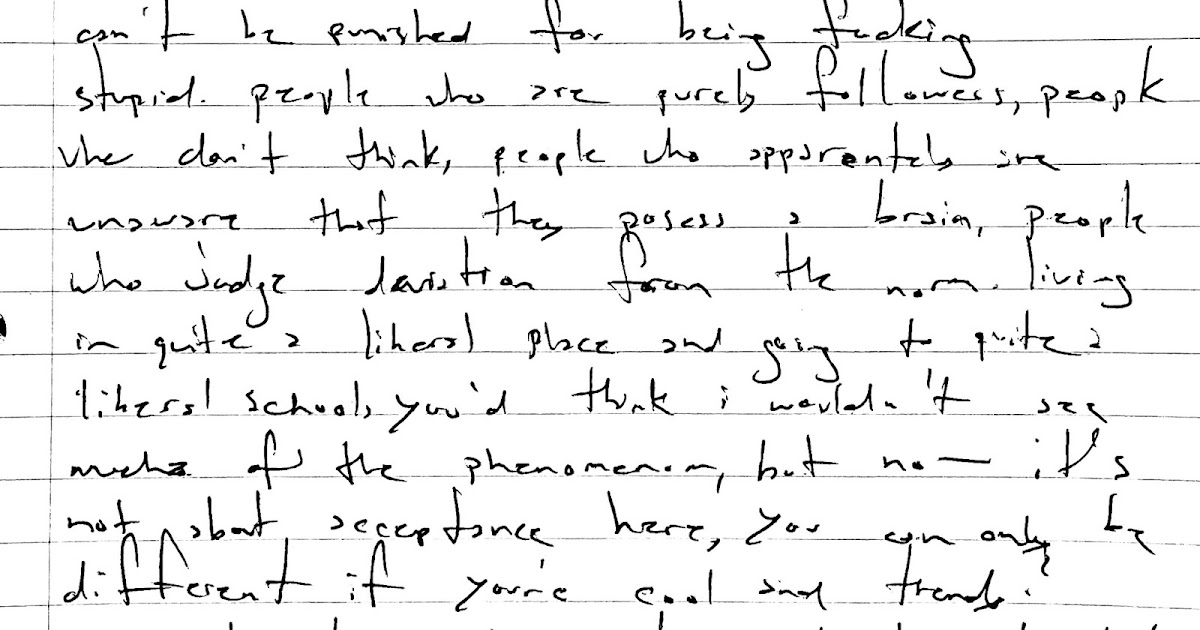 can't be punished for being fucking
stupid. people who are purely followers, people
who don't think, people who apparently are
unaware that they posess a brain, people
who judge deviation from the norm. living
in quite a liberal place and going to quite a
liberal school, you'd think i wouldn't see
much of the phenomenon, but no — it's
not about acceptance here, you can only be
different if you're cool and trendy.